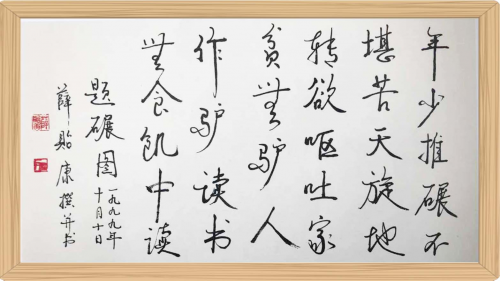 年少推碾不
堪苦天旋地
转欲呕吐家
贫无驴人
作驴读书
无食饥中读
题碾图
一九九九年
十月十日
薛贻康撰并书